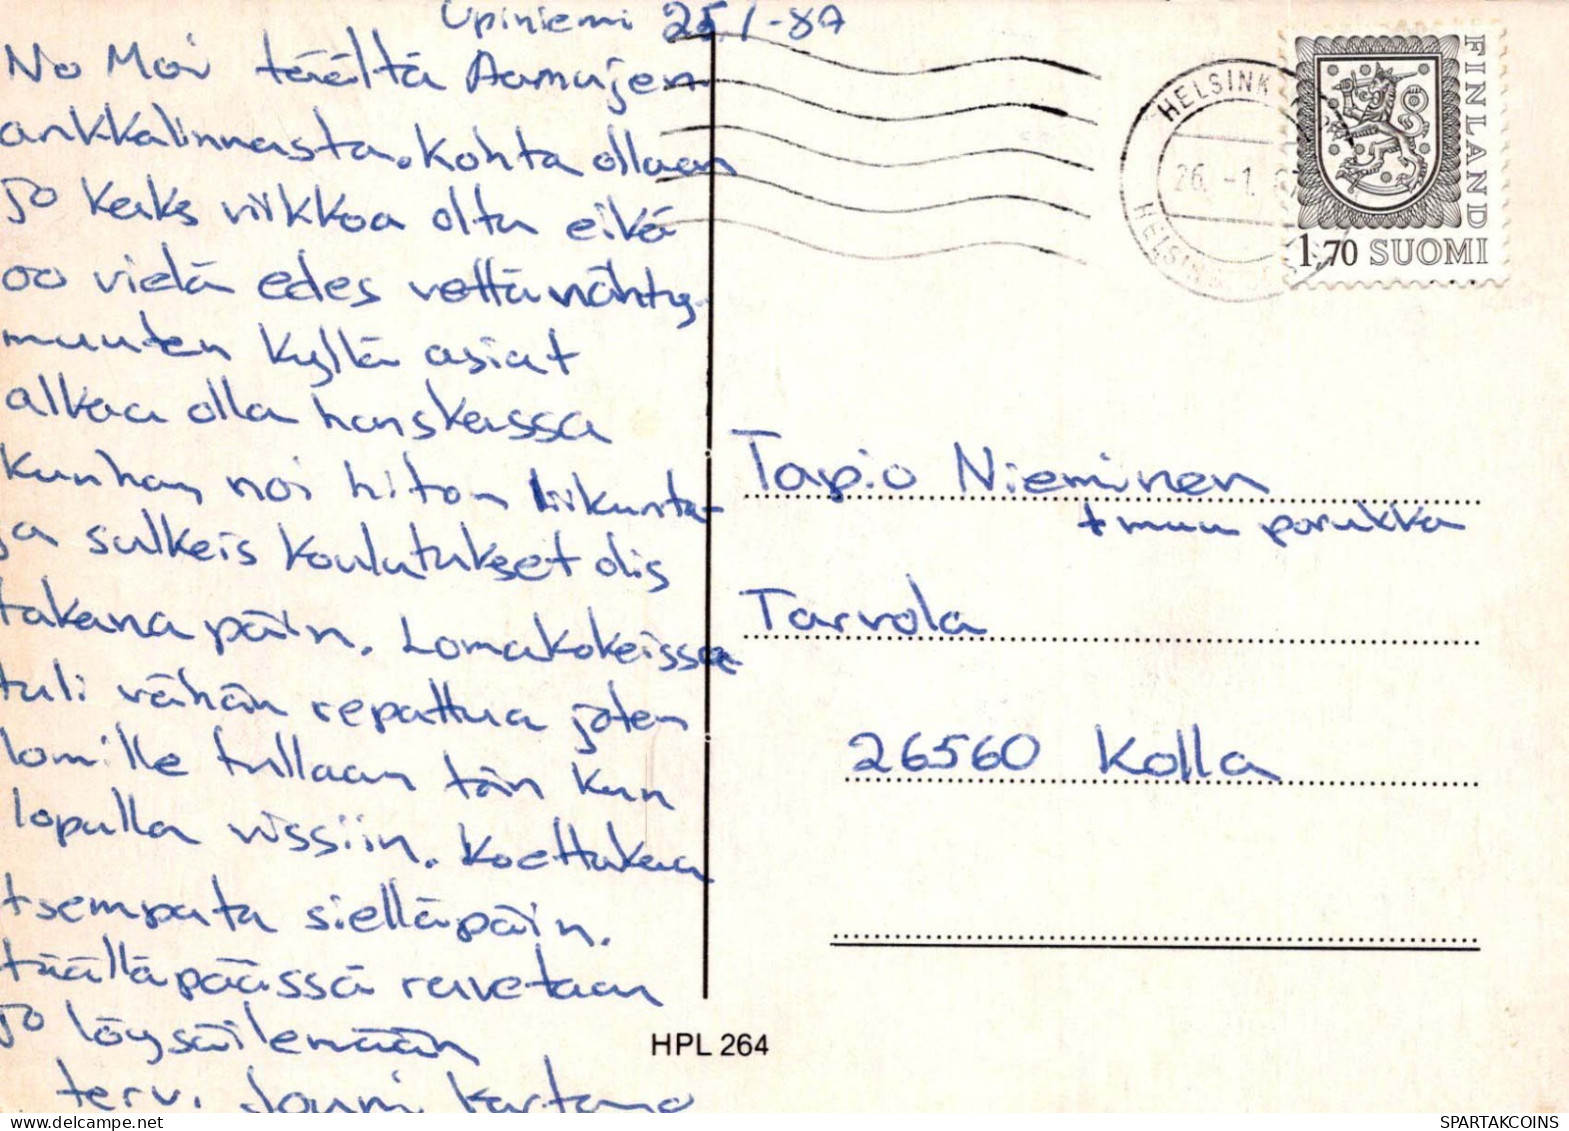 Upiniemi 25.1-87
No Moi täältä Aamujen
ankkalinnasta. Kohta ollaan
jo kaks viikkoa oltu eikä
oo vielä edes vettä nähty.
muuten kyllä asiat
alkaa olla hanskassa
kunhan noi hiton liikunta-
ja sulkeis koulutukset olis
takana päin. Lomakokeissa
tuli vähän repattua joten
lomille tullaan tän kun
lopulla vissiin. Koettakaa
tsempata sielläpäin.
täälläpäässä ruvetaan
jo löysäilemään
terv. Jouni
HELSINK
26.-1.
HELSIN
FINLAND
1,70 SUOMI
Tapio Nieminen
+ muu porukka
Tarvola
26560 Kolla
HPL 264
SPARTAKCOINS
www.delcampe.net